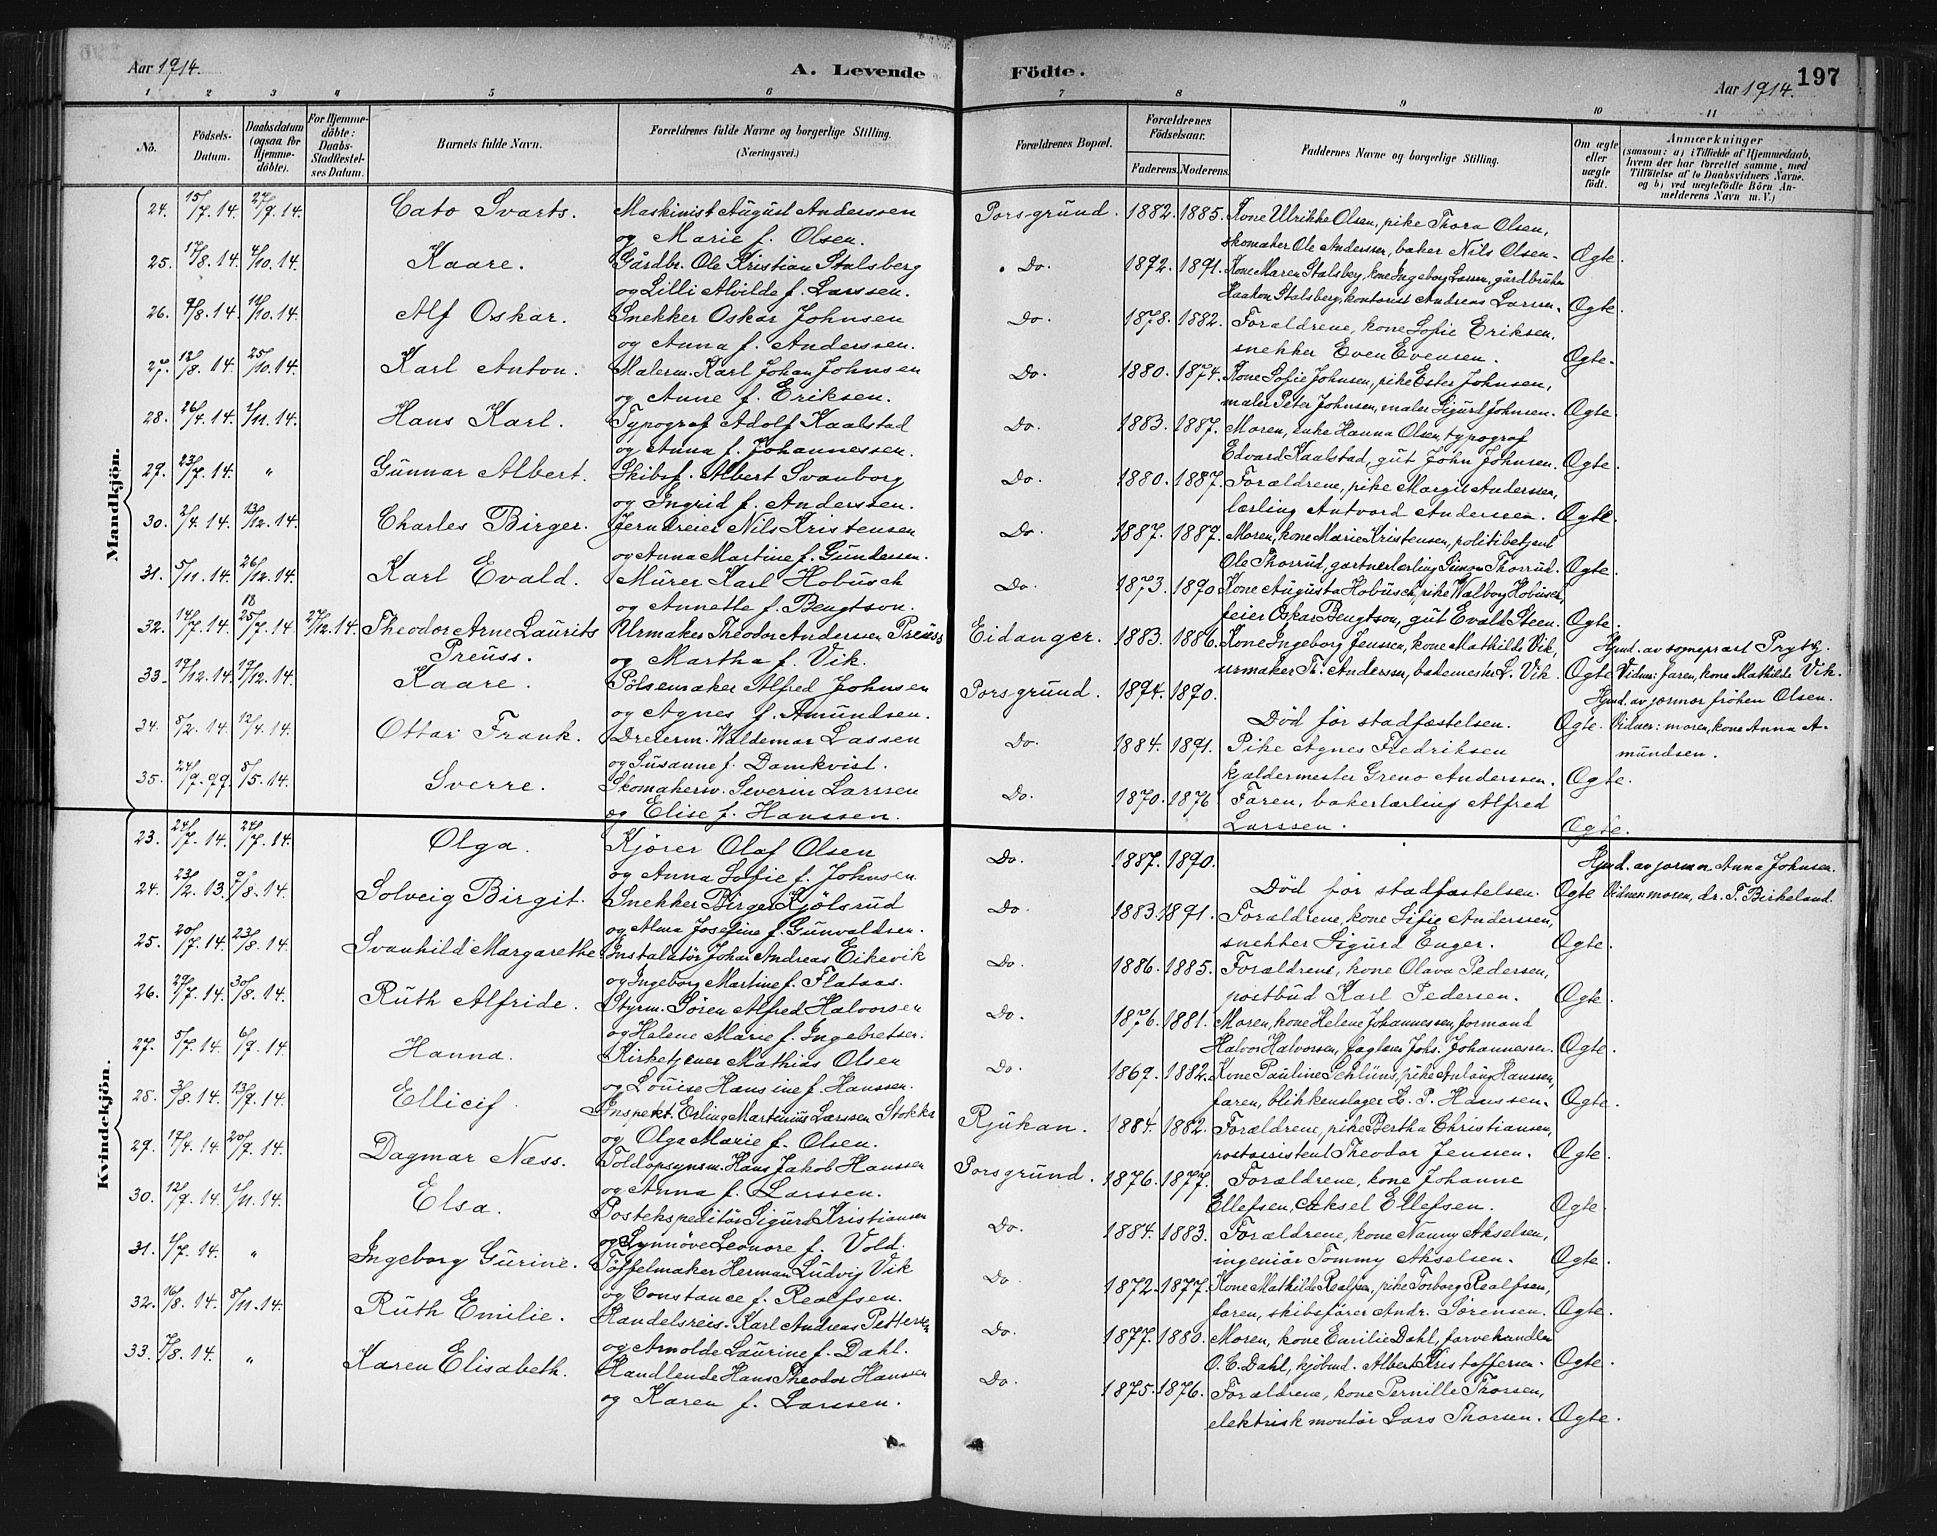 Aar 1914. A. Levende Födte. Aar 1914. 197
1 2 3 4 5 6 7 8 9 10 11
No. Födsels-Datum. Daabsdatum (ogsaa for Hjemmedöbte). For Hjemmedöbte: Daabs-Stadfestelses Datum. Barnets fulde Navn. Forældrenes fulde Navne og borgerlige Stilling. (Næringsvei.) Forældrenes Bopæl. Forældrenes Födselsaar. Faderens. Moderens. Faddernes Navne og borgerlige Stilling. Om ægte eller uægte födt. Anmærkninger (saasom: a) i Tilfælde af Hjemmedaab, hvem der har forrettet samme, med Tilföielse af to Daabsvidners Navne, og b) ved uægtefödte Börn Anmelderens Navn m. V.)
Mandkjön.
24. 15/7.14. 27/9.14. Cato Svarts. Maskinist August Anderssen Porsgrund. 1882. 1885. Kone Ulrikke Olsen, pike Thora Olsen,
og Marie f. Olsen. skomaker Ole Anderssen, baker Nils Olsen. Ægte.
25. 17/8.14. 4/10.14. Kaare. Gårdbr. Ole Kristian Stalsberg Do. 1872. 1891. Kone Maren Stalsberg, kone Ingeborg Larsen, gårdbruker
og Lilli Alvilde f. Larssen. Haakon Stalsberg, kontorist Andreas Larsen. Ægte.
26. 9/8.14. 11/10.14. Alf Oskar. Snekker Oskar Johnsen Do. 1878. 1882. Forældrene, kone Sofie Eriksen,
og Anna f. Anderssen. snekker Even Evensen. Ægte.
27. 12/8.14. 25/10.14. Karl Anton. Malerm. Karl Johan Johnsen Do. 1880. 1874. Kone Sofie Johnsen, pike Ester Johnsen,
og Anne f. Eriksen. maler Peter Johnsen, maler Sigurd Johnsen. Ægte.
28. 26/4.14. 1/11.14. Hans Karl. Typograf Adolf Kaalstad Do. 1883. 1887. Moren, enke Hanna Olsen, typograf
og Anna f. Johannessen. Edvard Kaalstad, gut John Johnsen. Ægte.
29. 23/7.14. " Gunnar Albert. Skibsf. Albert Svanborg Do. 1880. 1887. Forældrene, pike Margit Anderssen,
og Ingrid f. Anderssen. lærling Antvord Anderssen. Ægte.
30. 2/4.14. 13/12.14. Charles Birger. Jerndreier Nils Kristensen Do. 1887. 1889. Moren, kone Marie Kristensen, politibetjent
og Anna Martine f. Gundersen. Ole Thorrud, gartnerlærling Thorrud. Ægte.
31. 5/11.14. 26/12.14. Karl Evald. Murer Karl Hobusch Do. 1873. 1890. Kone Augusta Hobusch, pike Walborg Hobusch,
og Annette f. Bengtson. feier Oskar Bengtson, gut Evald Steen. Ægte.
32. 14/7.14. 18 25/7.14 27/12.14. Theodor Arne Laurits Urmaker Theodor Anderssen Preuss Eidanger. 1883. 1886. Kone Ingeborg Jenssen, kone Mathilde Vik, Hjmd. av sogneprest Prytz.
Preuss. og Martha f. Vik. urmaker Th. Anderssen, bademester L. Vik. Ægte Vidner: faren, kone Mathilde Vik.
33. 19/12.14. 19/12.14. Kaare. Pølsemaker Alfred Johnsen Porsgrund. 1894. 1890. Hjmd. av jormor frøken Olsen.
og Agnes f. Amundsen. Død før stadfæstelsen. Ægte. Vidner: moren, kone Anna A-
34. 5/2.14. 12/4.14. Ottar Frank. Dreierm. Waldemar Lassen Do. 1884. 1891. Pike Agnes Fredriksen mundsen.
og Susanne f. Damkvist. kjældermester Greno Anderssen. Ægte.
35. 24/9.99. 8/5.14. Sverre. Skomakersv. Severin Larssen Do. 1870. 1876 Faren, bakerlærling Alfred
og Elise f. Hanssen. Larssen. Ægte.
Kvindekjön.
23. 24/7.14. 24/7.14. Olga. Kjører Olaf Olsen Do. 1887. 1890. Hjmd. av jormor Anna Johnsen.
og Anna Sofie f. Johnsen. Død før stadfæstelsen. Ægte Vidner: moren, dr. F. Birkeland.
24. 23/2.13. 9/8.14. Solveig Birgit. Snekker Birger Kjølsrud Do. 1883. 1891. Forældrene, kone Sofie Anderssen,
og Alma Josefine f. Gunvaldsen. snekker Sigurd Enger. Ægte.
25. 20/7.14. 23/8.14. Svanhild Margarethe Instalatør Johan Andreas Eikevik Do. 1886. 1885. Forældrene, kone Olava Pedersen,
og Ingeborg Martine f. Flataas. postbud Karl Pedersen. Ægte.
26. 29/7.14. 30/8.14. Ruth Alfride. Styrm. Søren Alfred Halvorsen Do. 1876. 1881. Moren, kone Helene Johannessen, formand
og Helene Marie f. Ingebretsen. Halvor Halvorsen, faglærer Johs. Johannessen. Ægte.
27. 5/7.14. 6/9.14. Hanna. Kirketjener Mathias Olsen Do. 1869. 1882. Kone Pauline Schlüns, pike Anlaug Hanssen,
og Louise Hansine f. Hanssen. faren, blikkenslager H. P. Hanssen. Ægte.
28. 3/8.14. 13/9.14. Ellicif Inspekt. Erling Martinius Larssen Stokke Rjukan. 1884. 1882. Forældrene, pike Bertha Christiansen,
og Olga Marie f. Olsen. postassistent Theodor Jenssen. Ægte.
29. 17/4.14. 20/9.14. Dagmar Næss. Toldopsynsm. Hans Jakob Hanssen Porsgrund. 1876. 1877. Forældrene, kone Johanne
og Anna f. Larssen. Ellefsen, Aksel Ellefsen. Ægte.
30. 12/9.14. 1/11.14. Elsa. Postekspeditør Sigurd Kristiansen Do. 1884. 1883. Forældrene, kone Nanny Akselsen,
og Synnøve Leonore f. Vold. ingeniør Tommy Akselsen. Ægte.
31. 1/7.14. " Ingeborg Gurine. Tøffelmaker Herman Ludvig Vik Do. 1872. 1877. Kone Mathilde Realfsen, pike Torborg Realfsen,
og Constance f. Realfsen. faren, skibsfører Andr. Sørensen. Ægte.
32. 16/8.14. 8/11.14. Ruth Emilie. Handelsreis. Karl Andreas Pettersen Do. 1877. 1880. Moren, kone Emilie Dahl, farvehandler
og Arnolde Laurine f. Dahl. O. C. Dahl, kjøbmd. Albert Kristoffersen. Ægte.
33. 7/8.14. " Karen Elisabeth. Handlende Hans Theodor Hanssen Do. 1875. 1876. Forældrene, kone Pernille Thorsen,
og Karen f. Larssen. elektrisk montør Lars Thorsen. Ægte.